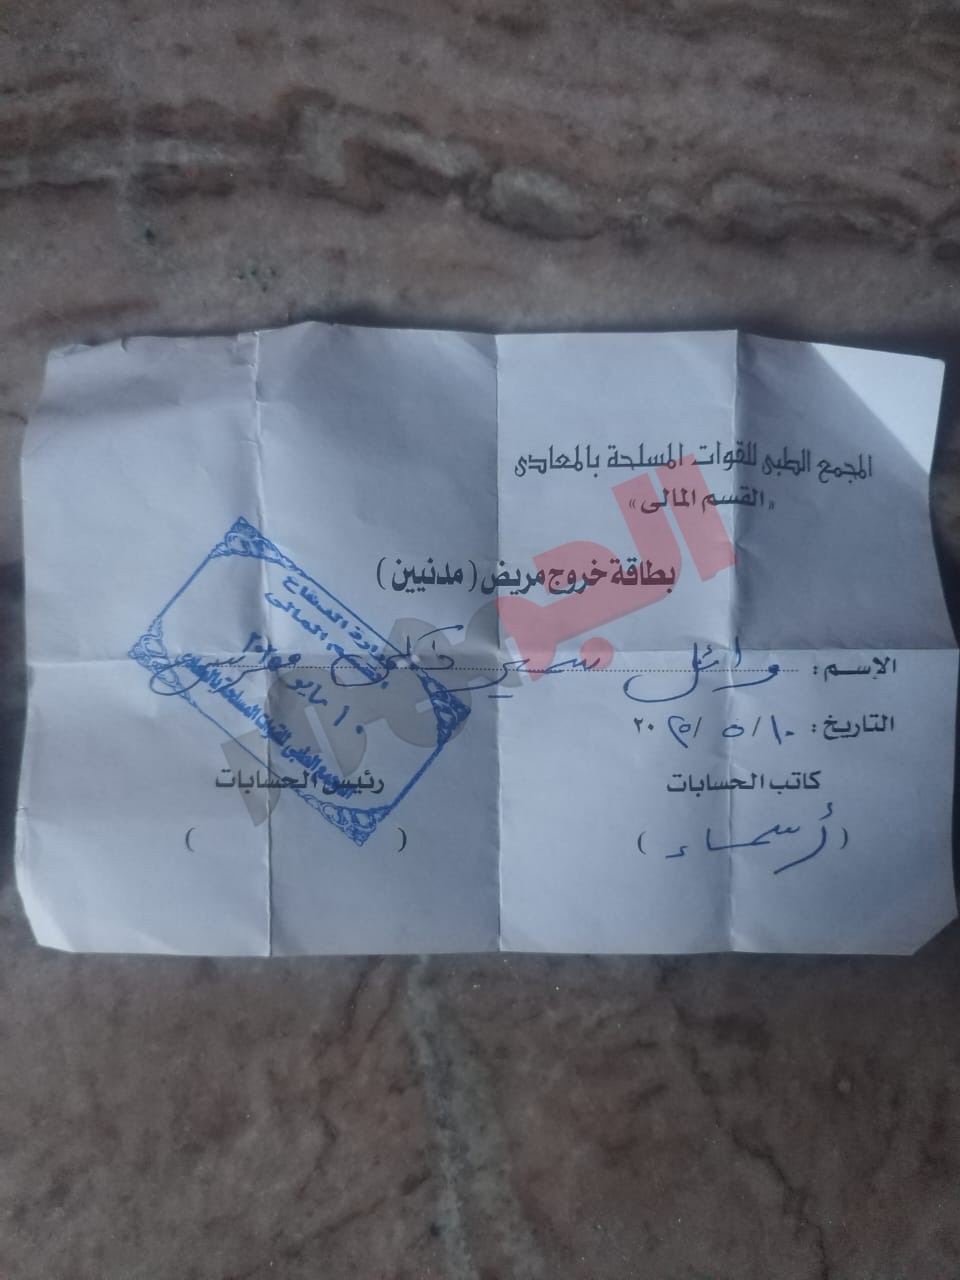 المجمع الطبى للقوات المسلحة بالمعادى
«القسم المالى»
بطاقة خروج مريض (مدنيين)
الإسم: وائل سمير
التاريخ: ١٠/٥/٢٠٢٥
كاتب الحسابات
رئيس الحسابات
(أسماء)
( )
وزارة الدفاع
القسم المالى
١٠ مايو ٢٠٢٥
المجمع الطبى للقوات المسلحة بالمعادى